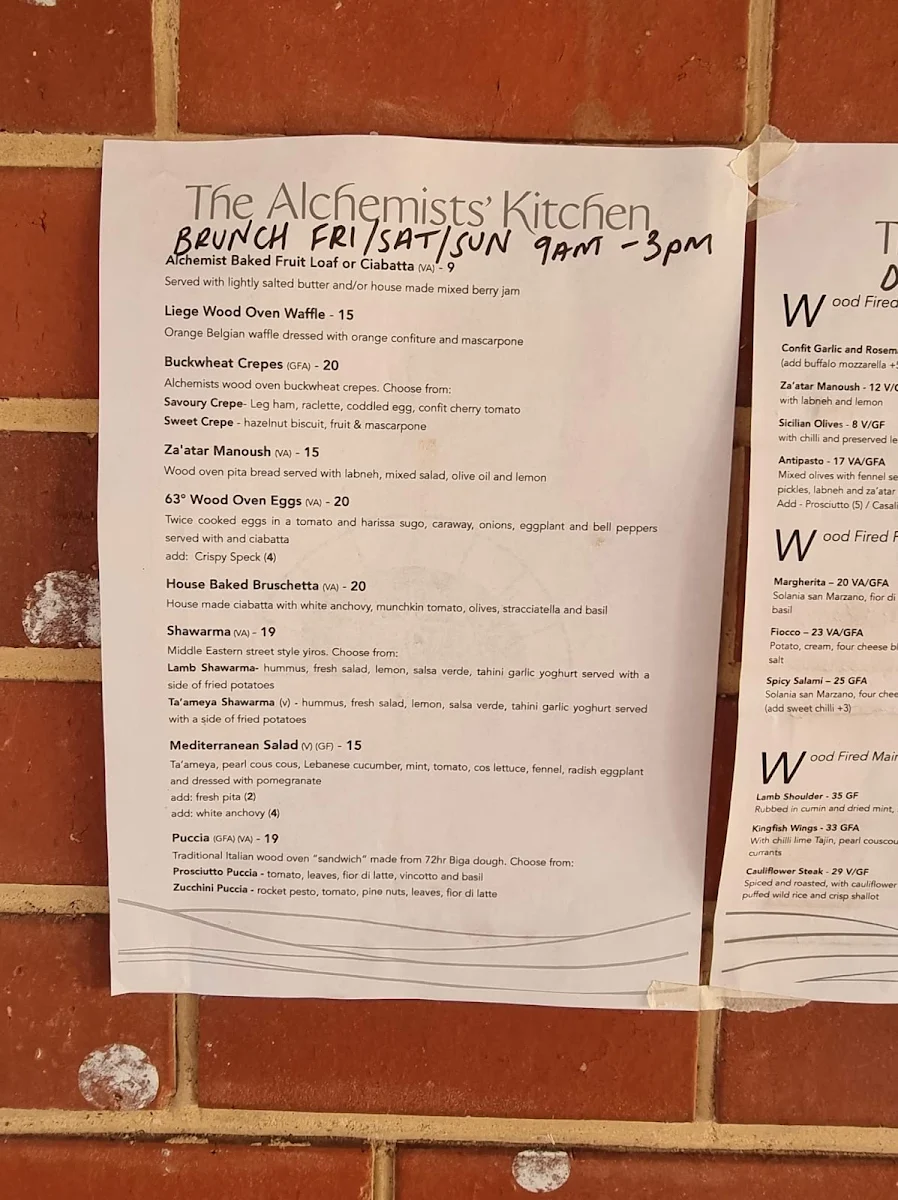 The Alchemists' Kitchen
BRUNCH FRI/SAT/SUN 9AM - 3PM
Alchemist Baked Fruit Loaf or Ciabatta (VA) - 9
Served with lightly salted butter and/or house made mixed berry jam
Liege Wood Oven Waffle - 15
Orange Belgian waffle dressed with orange confiture and mascarpone
Buckwheat Crepes (GFA) - 20
Alchemists wood oven buckwheat crepes. Choose from:
Savoury Crepe- Leg ham, raclette, coddled egg, confit cherry tomato
Sweet Crepe - hazelnut biscuit, fruit & mascarpone
Za'atar Manoush (VA) - 15
Wood oven pita bread served with labneh, mixed salad, olive oil and lemon
63° Wood Oven Eggs (VA) - 20
Twice cooked eggs in a tomato and harissa sugo, caraway, onions, eggplant and bell peppers
served with and ciabatta
add: Crispy Speck (4)
House Baked Bruschetta (VA) - 20
House made ciabatta with white anchovy, munchkin tomato, olives, stracciatella and basil
Shawarma (VA) - 19
Middle Eastern street style yiros. Choose from:
Lamb Shawarma- hummus, fresh salad, lemon, salsa verde, tahini garlic yoghurt served with a
side of fried potatoes
Ta'ameya Shawarma (v) - hummus, fresh salad, lemon, salsa verde, tahini garlic yoghurt served
with a side of fried potatoes
Mediterranean Salad (V) (GF) - 15
Ta'ameya, pearl cous cous, Lebanese cucumber, mint, tomato, cos lettuce, fennel, radish eggplant
and dressed with pomegranate
add: fresh pita (2)
add: white anchovy (4)
Puccia (GFA) (VA) - 19
Traditional Italian wood oven "sandwich" made from 72hr Biga dough. Choose from:
Prosciutto Puccia - tomato, leaves, fior di latte, vincotto and basil
Zucchini Puccia - rocket pesto, tomato, pine nuts, leaves, fior di latte
T
D
Wood Fired
Confit Garlic and Rosem
(add buffalo mozzarella +5
Za'atar Manoush - 12 V/G
with labneh and lemon
Sicilian Olives - 8 V/GF
with chilli and preserved le
Antipasto - 17 VA/GFA
Mixed olives with fennel se
pickles, labneh and za'atar
Add - Prosciutto (5) / Casali
Wood Fired P
Margherita – 20 VA/GFA
Solania san Marzano, fior di
basil
Fiocco – 23 VA/GFA
Potato, cream, four cheese bl
salt
Spicy Salami – 25 GFA
Solania san Marzano, four chee
(add sweet chilli +3)
Wood Fired Main
Lamb Shoulder - 35 GF
Rubbed in cumin and dried mint,
Kingfish Wings - 33 GFA
With chilli lime Tajin, pearl couscou
currants
Cauliflower Steak - 29 V/GF
Spiced and roasted, with cauliflower
puffed wild rice and crisp shallot